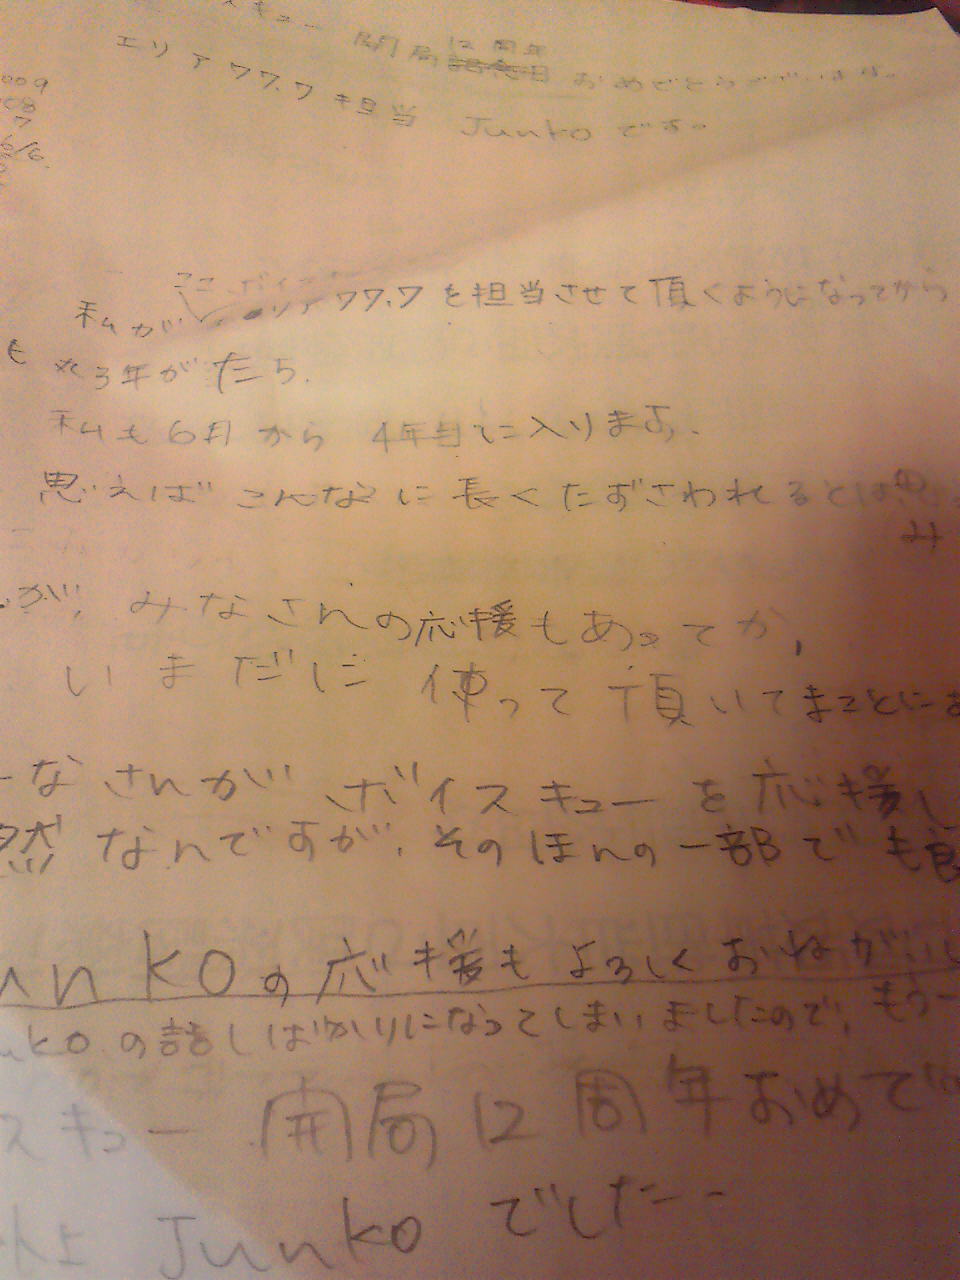 スキュー 開局12周年おめでとうございます。
エリア77.7担当 Junkoです。
009
08
7
6/6
ここ、ボイス
私がエリア77.7を担当させて頂くようになってから
も 丸3年がたち、
私も6月から 4年目に入ります。
思えば こんなに長くたずさわれるとは思
み
が、みなさんの応援もあってか、
いまだに 使って頂いてまことにあ
ーなさんが ボイスキューを応援し
然なんですが、そのほんの一部でも良
unkoの応援もよろしくおねがいし
unkoの話しばかりになってしまいましたので、もう一
スキュー 開局12周年おめで
以上 Junkoでした